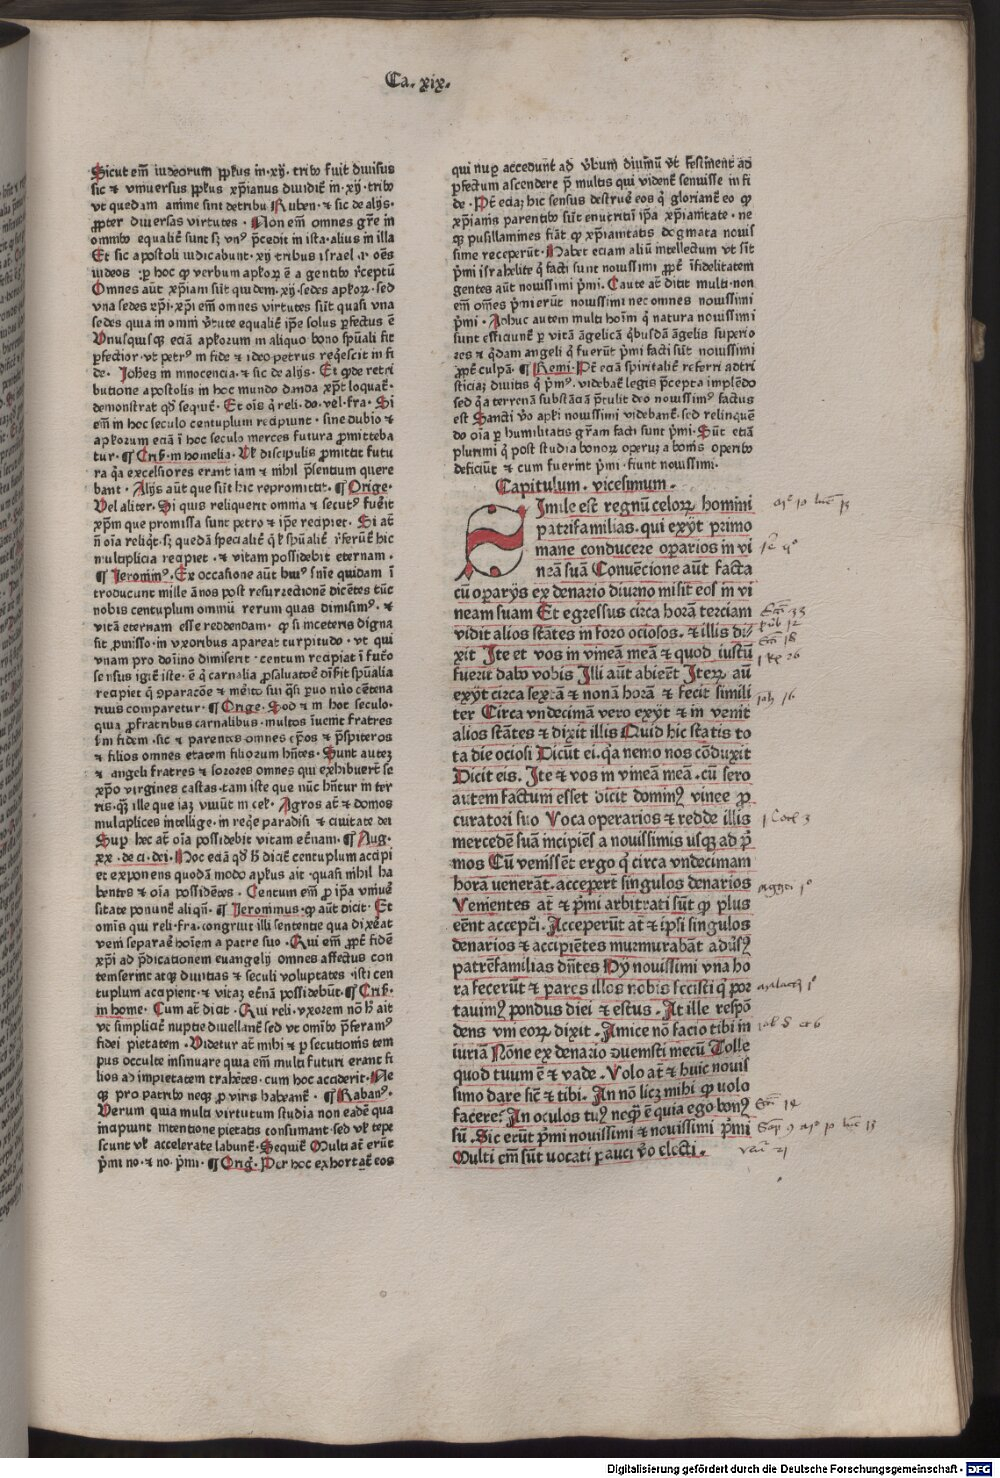 Ca. xix.
Sicut em̄ iudeorum ppľus in·xij·tribꝰ fuit diuisus
sic ⁊ vniuersus ppľus xp̄ianus diuidit̄ in·xij·tribꝰ
vt quedam anime sint detribu Ruben·⁊ sic de alijs·
ꝓpter diuersas virtutes · Non em̄ omnes gr̄e in
ommibꝰ equalit̄ sunt sꝫ vnꝰ p̄cedit in ista·alius in illa
Et sic apostoli iudicabunt·xij tribus israel·ı·oēs
iudeos ·ꝑ hoc ꝙ verbum apľoꝝ ē a gentibꝰ r̄ceptū
Omnes aūt xp̄iani sūt quidem·xij·sedes apľoꝝ·sed
vna sedes xp̄i·xp̄i em̄ omnes virtutes sūt quasi vna
sedes quia in omni v̄tute equalit̄ ip̄e solus ꝑfectus ē
Vnusquisqꝫ eciā apľorum in aliquo bono sp̄uali fit
ꝑfectior·vt petrꝰ in fide ⁊ ideo petrus reqͥescit in fi
de· Joh̄es in innocencia·⁊ sic de alijs· Et qꝛ de retri
butione apostolis in hoc mundo danda xp̄s loquat̄·
demonstrat qd̄ sequit̄· Et oīs qͥ reli·do·vel·fra· Si
em̄ in hoc seculo centuplum recipiunt· sine dubio ⁊
apľorum eciā ī hoc seculo merces futura ꝓmitteba
tur·¶ Cris̄·in homelia· Vľ discipulis ꝓmittit futu
ra qͥa excelsiores erant iam ⁊ nihil p̄sentium quere
bant· Alijs aūt que sūt hic repromittit·¶ Orige·
Vel aliter· Si quis reliquerit omnia ⁊ secutꝰ fuerit
xp̄m que promissa sunt petro ⁊ ip̄e recipiet· Si at̄
n̄ oīa reliqͥt·sꝫ quedā specialit̄
multiplicia recipiet·⁊ vitam possidebit eternam·
¶ Jeronimꝰ· Ex occasione aūt huiꝰ sn̄ie quidam ī
troducunt mille ānos post resurrectionē dicētes tūc
nobis centuplum omniū rerum quas dimisimꝰ·⁊
vitā eternam esse reddendam· ꝙ si in ceteris digna
sit ꝓmissio·in vxoribus apareat turpitudo·vt qui
vnam pro domino dimiserit·centum recipiat ī futuro
sensus igit̄ iste·ē qͥ carnalia ꝓ saluatore dimiserit sp̄ualia
recipiet
rius comparetur·¶ Orige· Sed ⁊ in hoc seculo·
quia ꝓ fratribus carnalibus·multos īuenit fratres
in fidem·sic ⁊ parentes omnes ep̄os ⁊ p̄sbiteros
⁊ filios omnes etatem filiorum hn̄tes· Sunt autez
⁊ angeli fratres ⁊ sorores omnes qui exhibuerūt se
xp̄o virgines castas·tam iste que nūc hn̄tur in ter
ris·qꝫ ille que iaꝫ viuūt in celis· Agros at̄ ⁊ domos
multiplices intellige·in reqͥe paradisi ⁊ ciuitate dei
Suꝑ hec at̄ oīa possidebit vitam et̄nam·¶ Aug·
xx·de ci·dei· Hoc eciā qd̄ dicit centuplum accipi
et exponens quodā modo apľus ait·quasi nihil ha
bentes ⁊ oīa possidētes· Centum em̄ ꝓ ip̄a vniuer
sitate ponunt̄ aliqn̄·¶ Jeronimus· ꝙ aūt dicit· Et
omis qui reli·fra·congruit illi sententie qua dixerat
veni separare hoīem a patre suo · Qui em̄ ꝓpt̄ fidē
xp̄i ad p̄dicationem euangelij omnes affectus con
temserint atqꝫ diuitias ⁊ seculi voluptates ·isti cen
tuplum accipient·⁊ vitaꝫ et̄nā possidebūt·¶ Cris̄·
in home· Cum at̄ dicit· Qui reli·vxorem nō h̄ ait
vt simplicit̄ nuptie diuellant̄ sed vt omibꝰ p̄feramꝰ
fidei pietatem · Videtur at̄ mihi ⁊ ꝑsecutionis tem
pus occulte insinuare quia em̄ multi futuri erant fi
lios ad impietatem trahētes·cum hoc acciderit· Ne
qꝫ pro patribꝰ neqꝫ ꝓ viris habeant̄ · ¶ Rabanꝰ·
Verum quia multi virtutum studia non eadē qua
incipiunt intentione pietatis consumant·sed vľ tepe
scunt vľ accelerate labunt̄· Sequit̄ Multi at̄ erūt
p̄mi no·⁊ no·p̄mi·¶ Oriḡ· Per hoc exhortat̄ eos
qui nuꝑ accedunt ad v̄bum diuinū vt festinent ad
ꝑfectum ascendere p̄ multis qui vident̄ senuisse in fi
de · Pt̄ eciaꝫ hic sensus destruē eos qͥ gloriant̄ eo ꝙ
xp̄ianis parentibꝰ sūt enutriti ip̄a xp̄ianitate ·ne
qꝫ pusillamines fiāt ꝙ xp̄ianitatis dogmata nouis
sime receperūt· Habet eciam aliū intellectum vt sīt
p̄mi israhelite qͥ facti sunt nouissimi ꝓpt̄ īfidelitatem
gentes aūt nouissimi p̄mi· Caute at̄ dicit multi·non
em̄ om̄es p̄mi erūt nouissimi nec omnes nouissimi
p̄mi · Adhuc autem multi hoīm qͥ natura nouissimi
sunt efficiunt̄ ꝑ vitā āgelicā qͥbusdā āgelis superio
res ⁊ qͥdam angeli qͥ fuerūt p̄mi facti sūt nouissimi
ꝓpt̄ culpā· ¶ Remi· Pt̄ eciā spiritalit̄ referri ad tri
sticiaꝫ diuitis qͥ p̄mꝰ·videbat̄ legis p̄cepta implēdo
sed qͥa terrenā substāciā p̄tulit deo nouissimꝰ factus
est Sancti v̄o apľi nouissimi videbant̄·sed relinquē
do oīa ꝑ humilitatis gr̄am facti sunt p̄mi· Sūt eciā
plurimi qͥ post studia bonoꝝ operuꝫ a bonis operibꝰ
deficiūt ⁊ cum fuerint p̄mi·fiunt nouissimi·
Capitulum · vicesimum·
Simile est regnū celoꝝ homini
patrifamilias·qui exijt primo
mane conducere operarios in vi
neā suā Conuēcione aūt facta
cū operarijs ex denario diurno misit eos in vi
neam suam Et egressus circa horā terciam
vidit alios stātes in foro ociosos·⁊ illis di/
xit Ite et vos in vineā meā ⁊ quod iustū
fuerit dabo vobis Illi aūt abierūt Iteꝝ aū
exijt circa sextā ⁊ nonā horā ⁊ fecit simili
ter Circa vndecimā vero exijt ⁊ in venit
alios stātes ⁊ dixit illis Quid hic statis to
ta die ociosi Dicūt ei·qꝛ nemo nos cōduxit
Dicit eis· Ite ⁊ vos in vineā meā·cū sero
autem factum esset dicit dominꝰ vinee ꝓ
curatori suo Voca operarios ⁊ redde illis
mercedē suā incipiēs a nouissimis usqꝫ ad p̄
mos Cū venissēt ergo qͥ circa vndecimam
horā venerāt·acceperūt singulos denarios
Venientes at̄ ⁊ p̄mi arbitrati sūt ꝙ plus
eēnt acceptī· Acceperūt at̄ ⁊ ip̄si singulos
denarios ⁊ accipiētes murmurabāt adūsꝰ
patrēfamilias dn̄tes Hij nouissimi vna ho
ra fecerūt ⁊ pares illos nobis fecisti qͥ por
tauimꝰ pondus diei ⁊ estus· At ille respō
dens vni eoꝝ dixit·Amice nō facio tibi in
iuriā Nōne ex denario ɔuenisti mecū Tolle
quod tuum ē ⁊ vade· Volo at̄ ⁊ huic nouis
simo dare sic̄ ⁊ tibi· An nō licꝫ mihi ꝙ uolo
facere? An oculos tuꝰ neqͣꝫ ē quia ego bonꝰ
sū· Sic erūt p̄mi nouissimi ⁊ nouissimi p̄mi
Multi em̄ sūt uocati pauci v̄o electi·
Digitalisierung gefördert durch die Deutsche Forschungsgemeinschaft - DFG